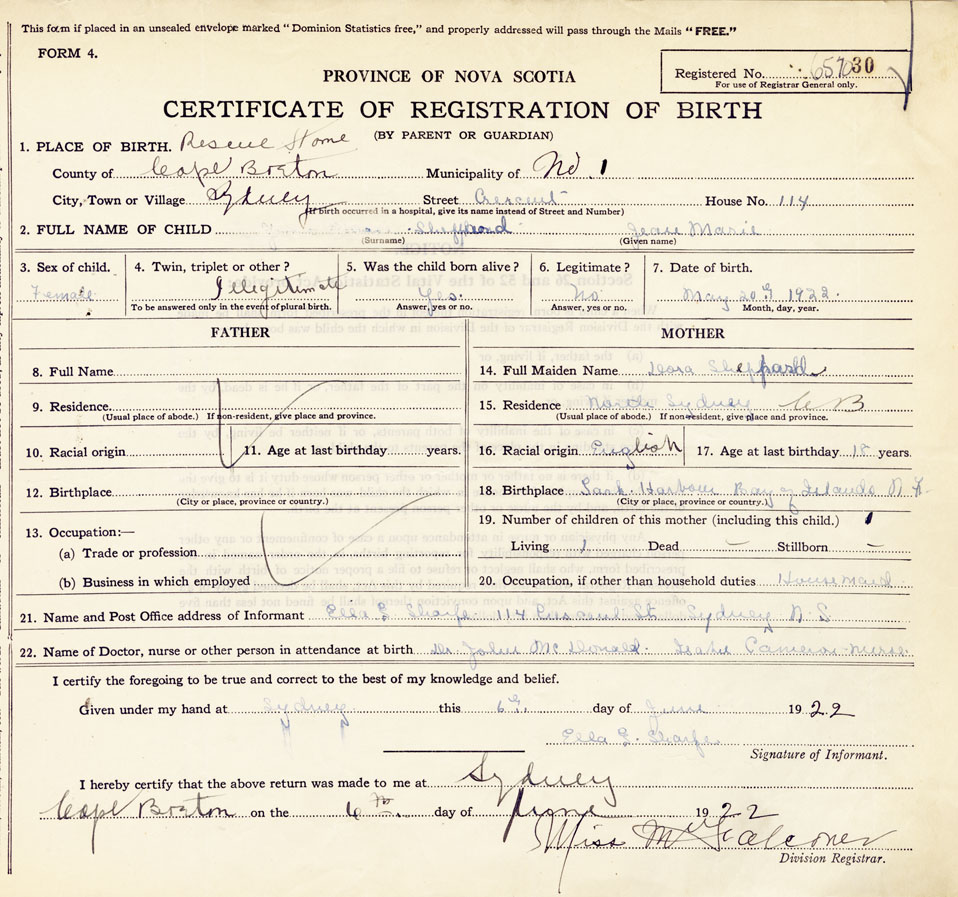 This form if placed in an unsealed envelope marked "Dominion Statistics free," and properly addressed will pass through the Mails "FREE."
FORM 4.
Registered No. 30
For use of Registrar General only.
PROVINCE OF NOVA SCOTIA
CERTIFICATE OF REGISTRATION OF BIRTH
(BY PARENT OR GUARDIAN)
1. PLACE OF BIRTH. Rescue Home
County of Cape Breton Municipality of No. 1
City, Town or Village Sydney Street Crescent House No. 114
(If birth occurred in a hospital, give its name instead of Street and Number)
2. FULL NAME OF CHILD Sheppard Jean Marie
(Surname) (Given name)
3. Sex of child. 4. Twin, triplet or other? 5. Was the child born alive? 6. Legitimate? 7. Date of birth.
Female Illegitimate Yes. No May 20th 1922.
To be answered only in the event of plural birth. Answer, yes or no. Answer, yes or no. Month, day, year.
FATHER MOTHER
8. Full Name 14. Full Maiden Name Dora Sheppard
9. Residence 15. Residence North Sydney CB
(Usual place of abode.) If non-resident, give place and province. (Usual place of abode.) If non-resident, give place and province.
10. Racial origin 11. Age at last birthday years. 16. Racial origin English 17. Age at last birthday 18 years.
12. Birthplace 18. Birthplace Harbour Bay of Islands N. F.
(City or place, province or country.) (City or place, province or country.)
13. Occupation:— 19. Number of children of this mother (including this child.) 1
(a) Trade or profession Living 1 Dead – Stillborn –
(b) Business in which employed 20. Occupation, if other than household duties Housemaid
21. Name and Post Office address of Informant Ella E Sharpe 114 Crescent St. Sydney N. S
22. Name of Doctor, nurse or other person in attendance at birth Dr John McDonald. Cameron nurse.
I certify the foregoing to be true and correct to the best of my knowledge and belief.
Given under my hand at Sydney this 6th. day of June 1922
Ella E. Sharpe
Signature of Informant.
I hereby certify that the above return was made to me at Sydney
Cape Breton on the 6th. day of June 1922
Miss Falconer
Division Registrar.